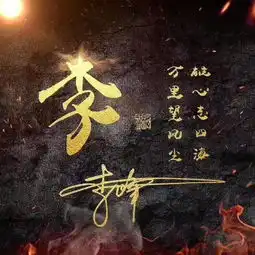 李
雄心志四海
万里望风尘
李峰